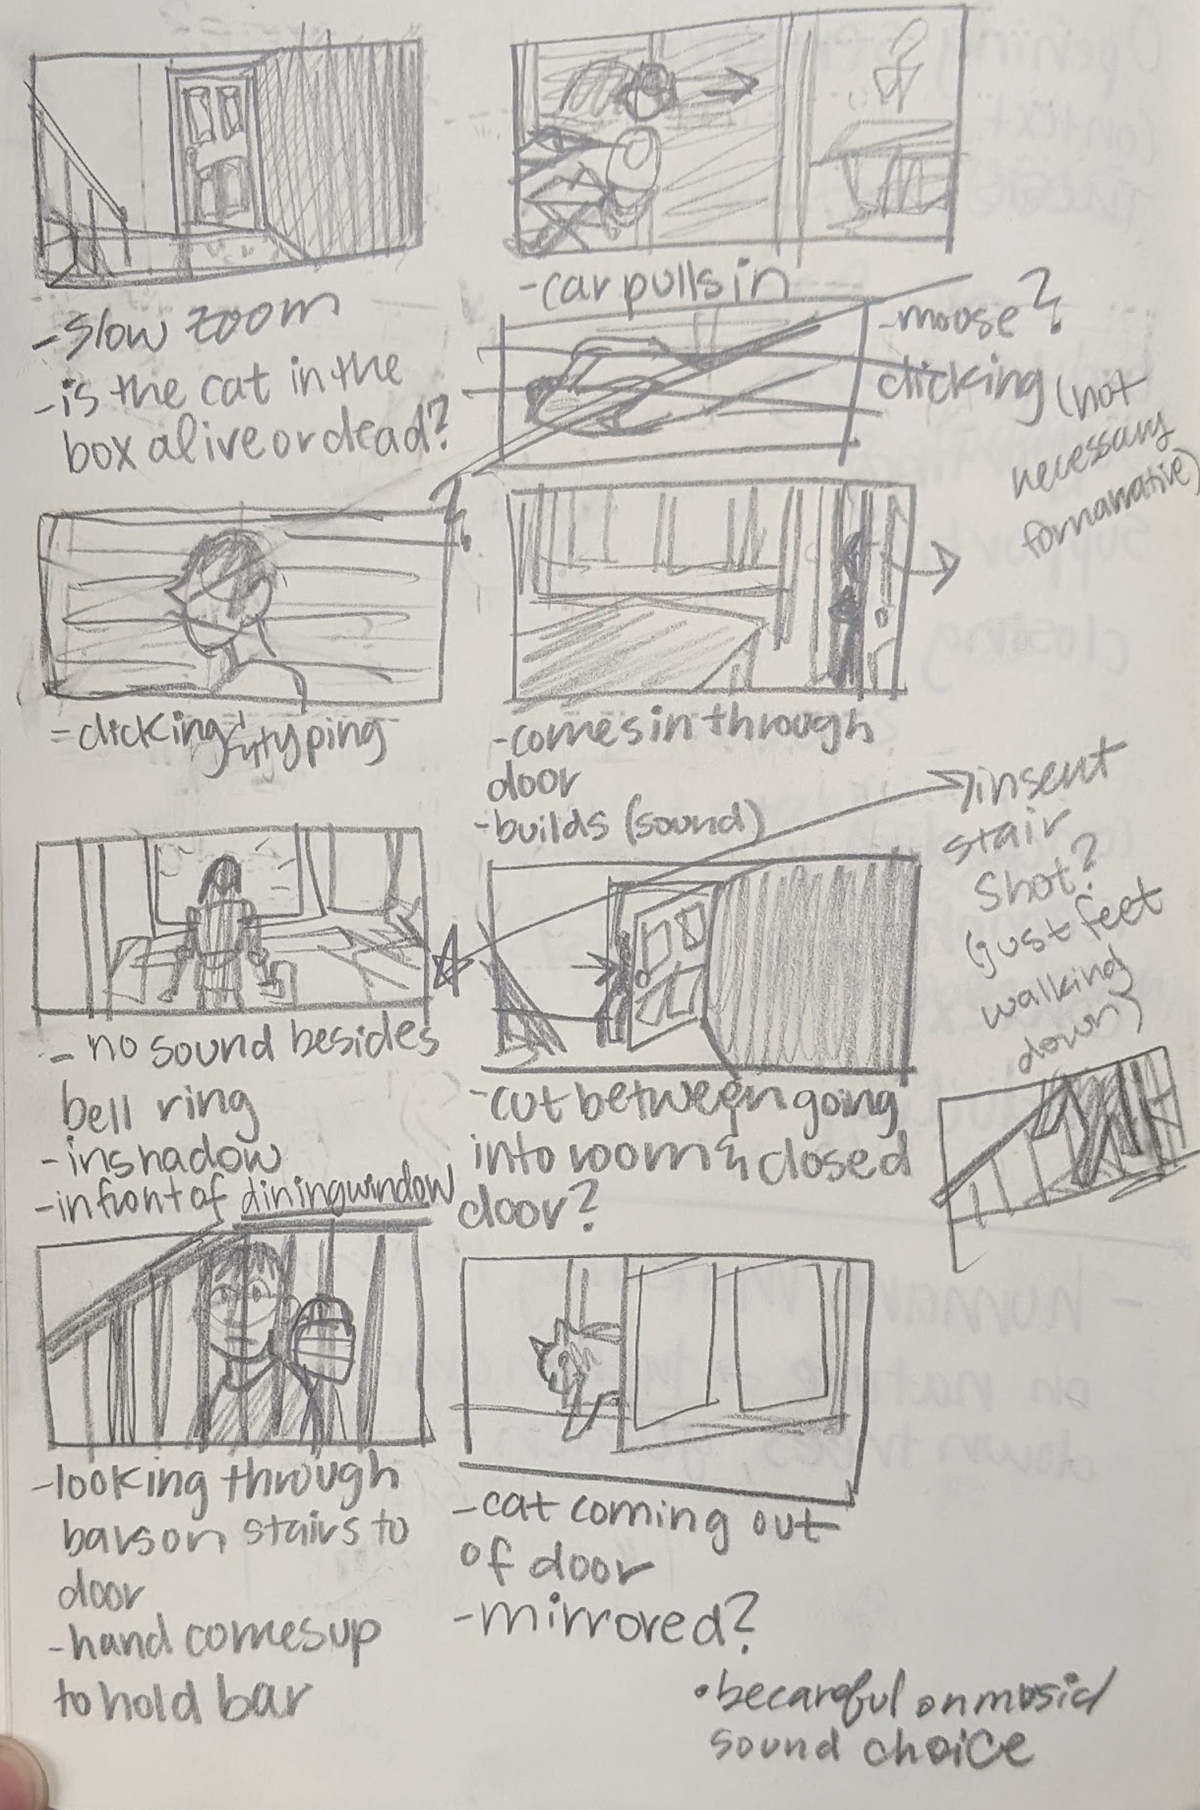 -slow zoom
-is the cat in the
box alive or dead?
-car pulls in
-moose?
clicking (not
necessary
for narrative)
-clicking & typing
-comes in through
door
-builds (sound)
insert
stair
shot?
(just feet
walking
down)
-no sound besides
bell ring
-in shadow
-in front of dining window
-cut between going
into room & closed
door?
-looking through
bars on stairs to
door
-hand comes up
to hold bar
-cat coming out
of door
-mirrored?
•be careful on music/
sound choice